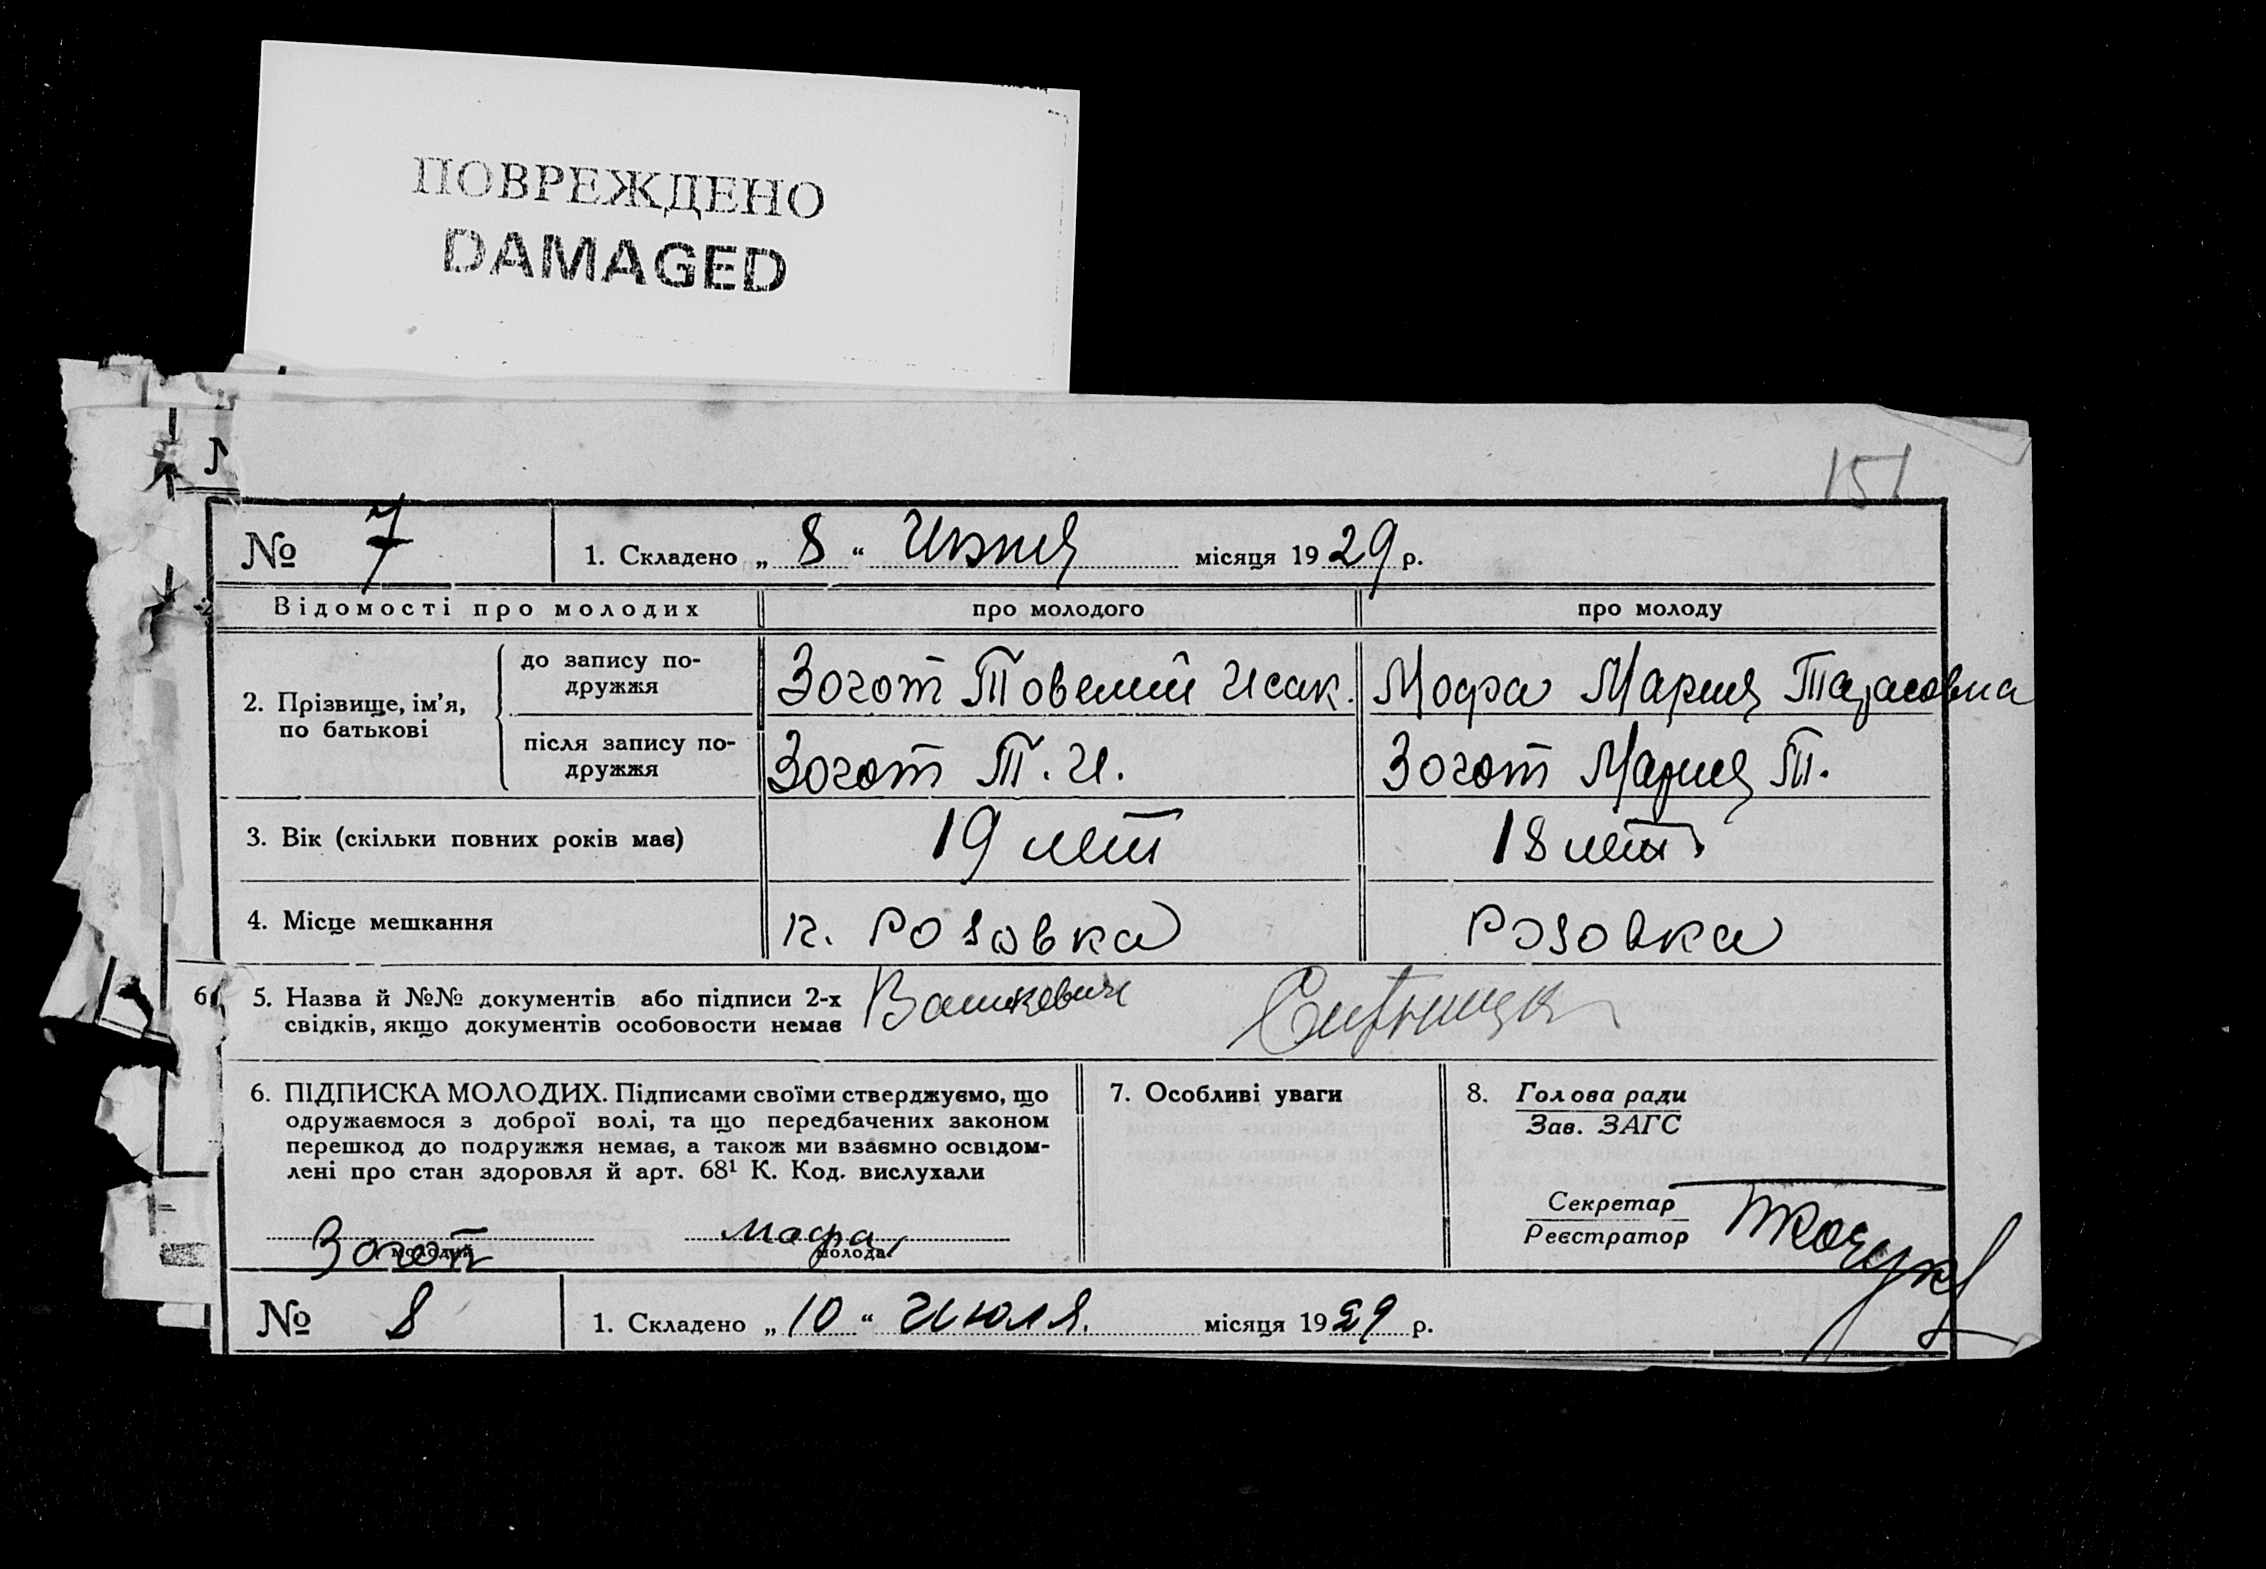 ПОВРЕЖДЕНО
DAMAGED
151
№ 7 1. Складено „ 8 “ Июня місяця 1929 р.
Відомості про молодих про молодого про молоду
2. Прізвище, ім’я, по батькові
до запису по-
дружжя
Зогот Товелий Исак. Мофа Мария Тарасовна
після запису по-
дружжя
Зогот Т. И. Зогот Мария Т.
3. Вік (скільки повних років має) 19 лет 18 лет
4. Місце мешкання к. Розовка Розовка
5. Назва й №№ документів або підписи 2-х
свідків, якщо документів особовости немає
Вашкевич
6. ПІДПИСКА МОЛОДИХ. Підписами своїми стверджуємо, що
одружаємося з доброї волі, та що передбачених законом
перешкод до подружжя немає, а також ми взаємно освідом-
лені про стан здоровля й арт. 68¹ К. Код. вислухали
Зогот Мофа
молодий молода
7. Особливі уваги
8. Голова ради
Зав. ЗАГС
Секретар
Реєстратор
№ 8 1. Складено „ 10 “ Июля. місяця 1929 р.